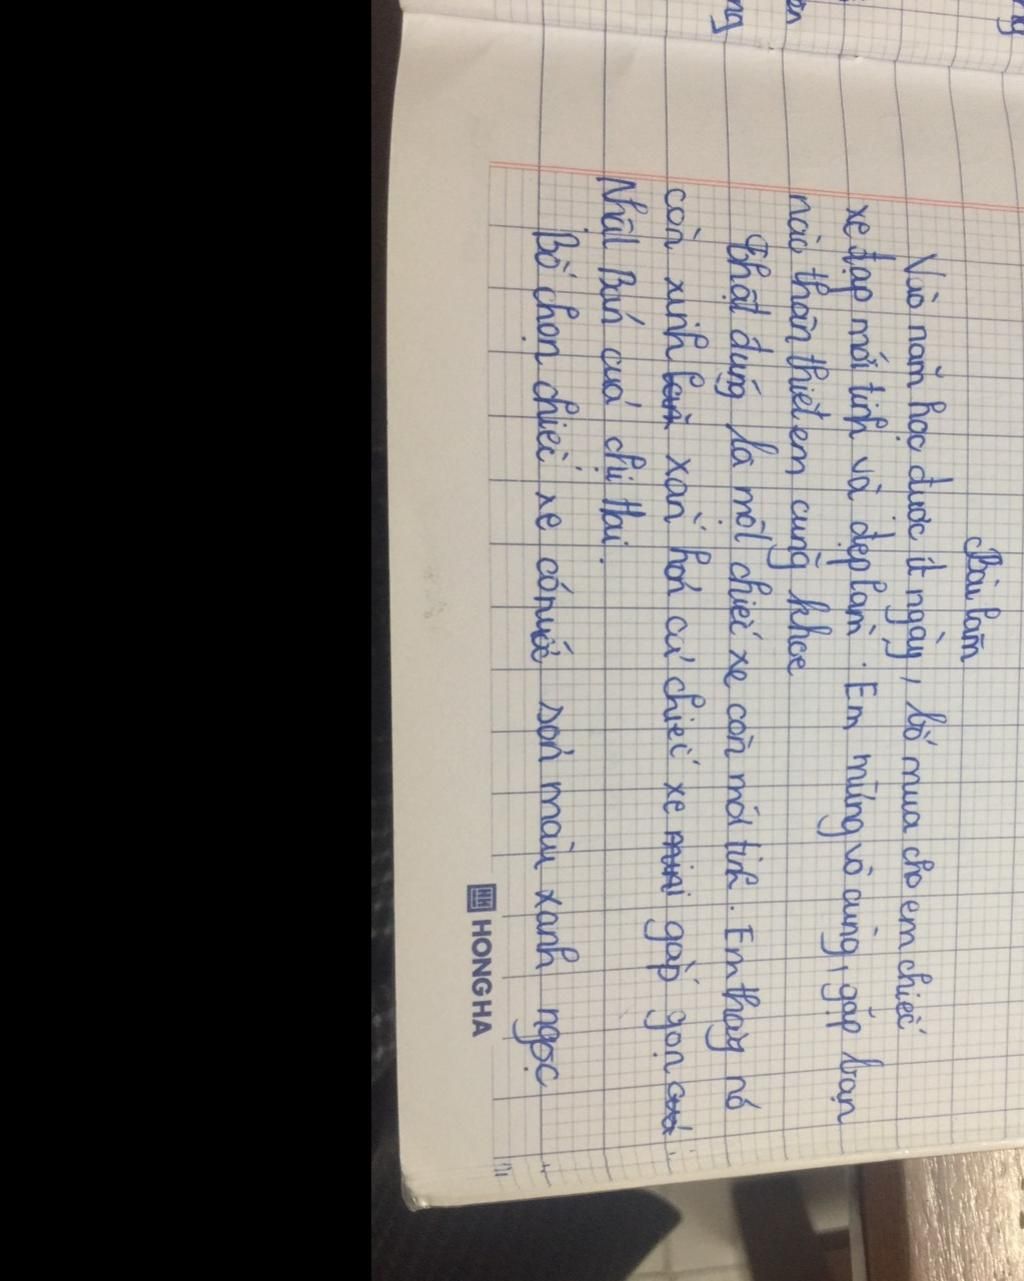 Bài làm
Vào năm học được ít ngày, bố mua cho em chiếc
xe đạp mới tinh và đẹp lắm. Em mừng vô cùng, gặp bạn
nào thân thiết em cũng khoe
Thật đúng là một chiếc xe còn mới tinh. Em thấy nó
còn xinh xắn hơn cả chiếc xe mini gấp gọn của
Nhật Bản của chị Hai.
Bố chọn chiếc xe có nước sơn màu xanh ngọc
HK HONG HA